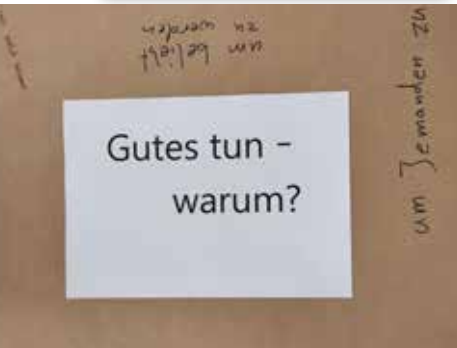 um beliebt
zu werden
Gutes tun -
warum?
um Jemanden zu